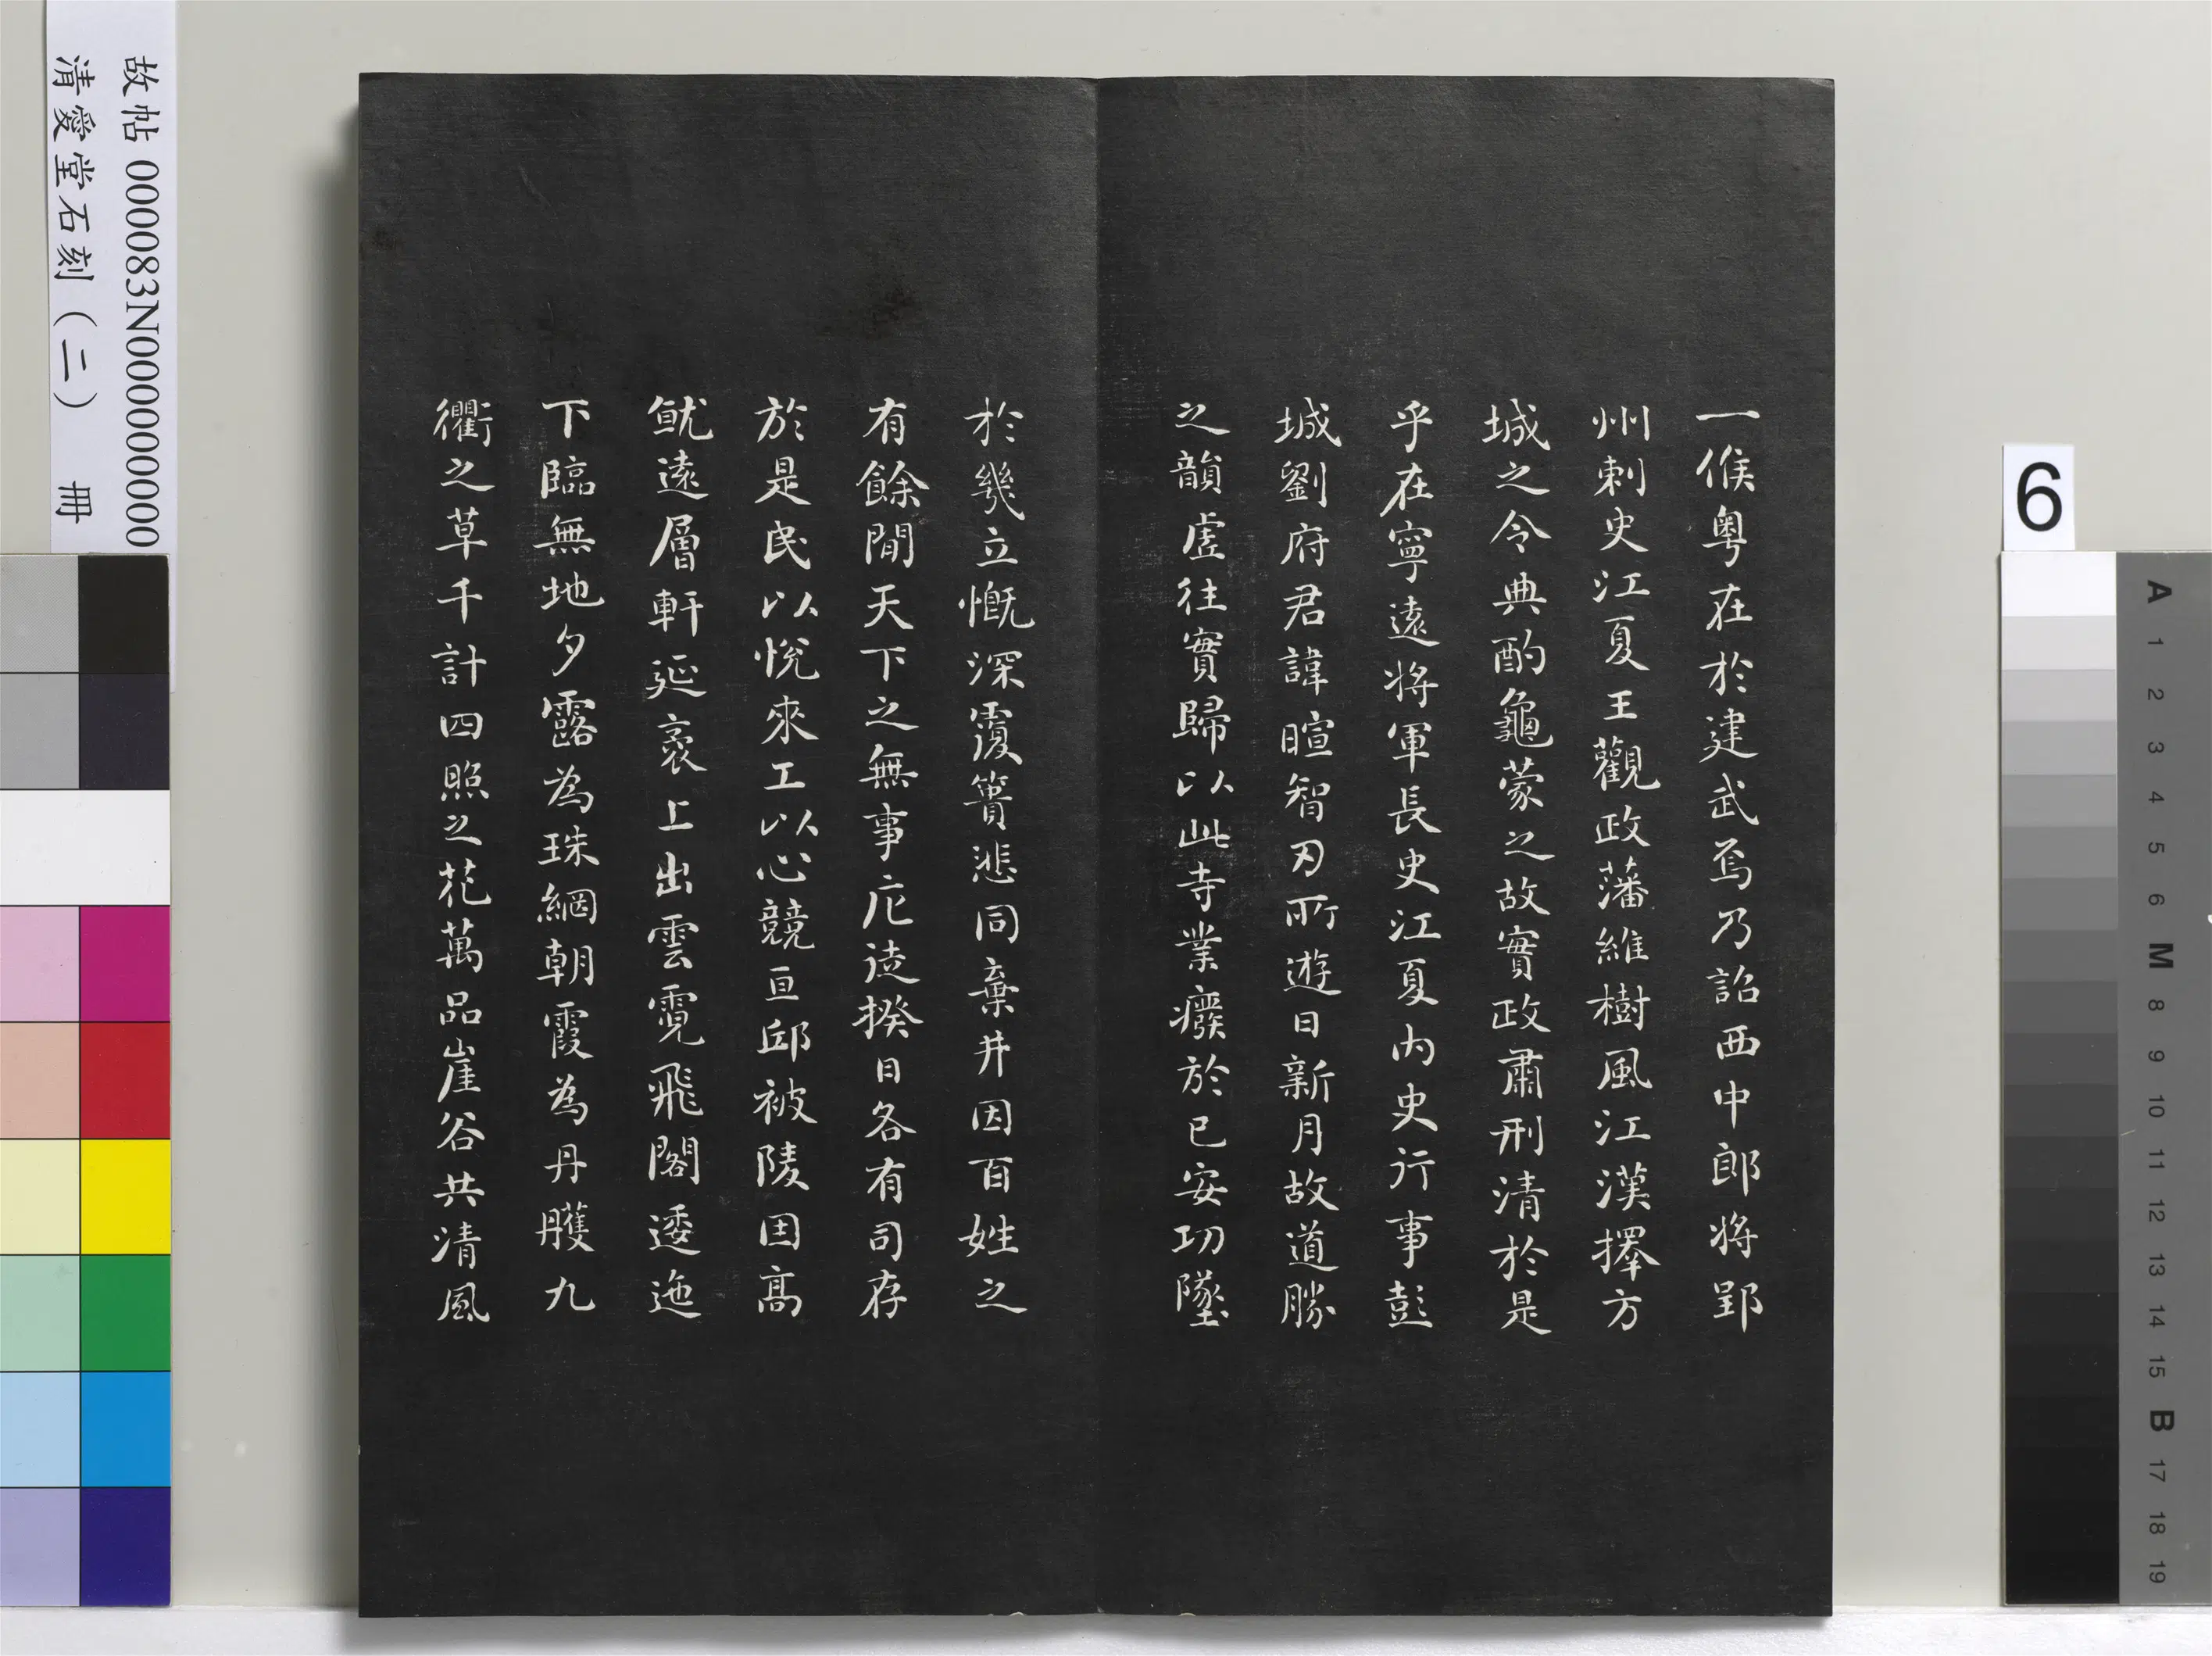 一候粤在於建武焉乃詔西中郎將郢
州刺史江夏王觀政藩維樹風江漢擇方
城之令典酌龜蒙之故實政肅刑清於是
乎在寧遠將軍長史江夏内史行事彭
城劉府君諱暄智刃所遊日新月故道勝
之韻虛往實歸以此寺業癈於已安功墜
於幾立慨深覆簣悲同棄井因百姓之
有餘閒天下之無事庀徒揆日各有司存
於是民以悅來工以心競亘邱被陵因髙
就遠層軒延袤上出雲霓飛閣逶迤
下臨無地夕露為珠網朝霞為丹雘九
衢之草千計四照之花萬品崖谷共清風
故帖 000083N000000000
清愛堂石刻(二) 冊
6
A
1
2
3
4
5
6
M
8
9
10
11
12
13
14
15
B
17
18
19